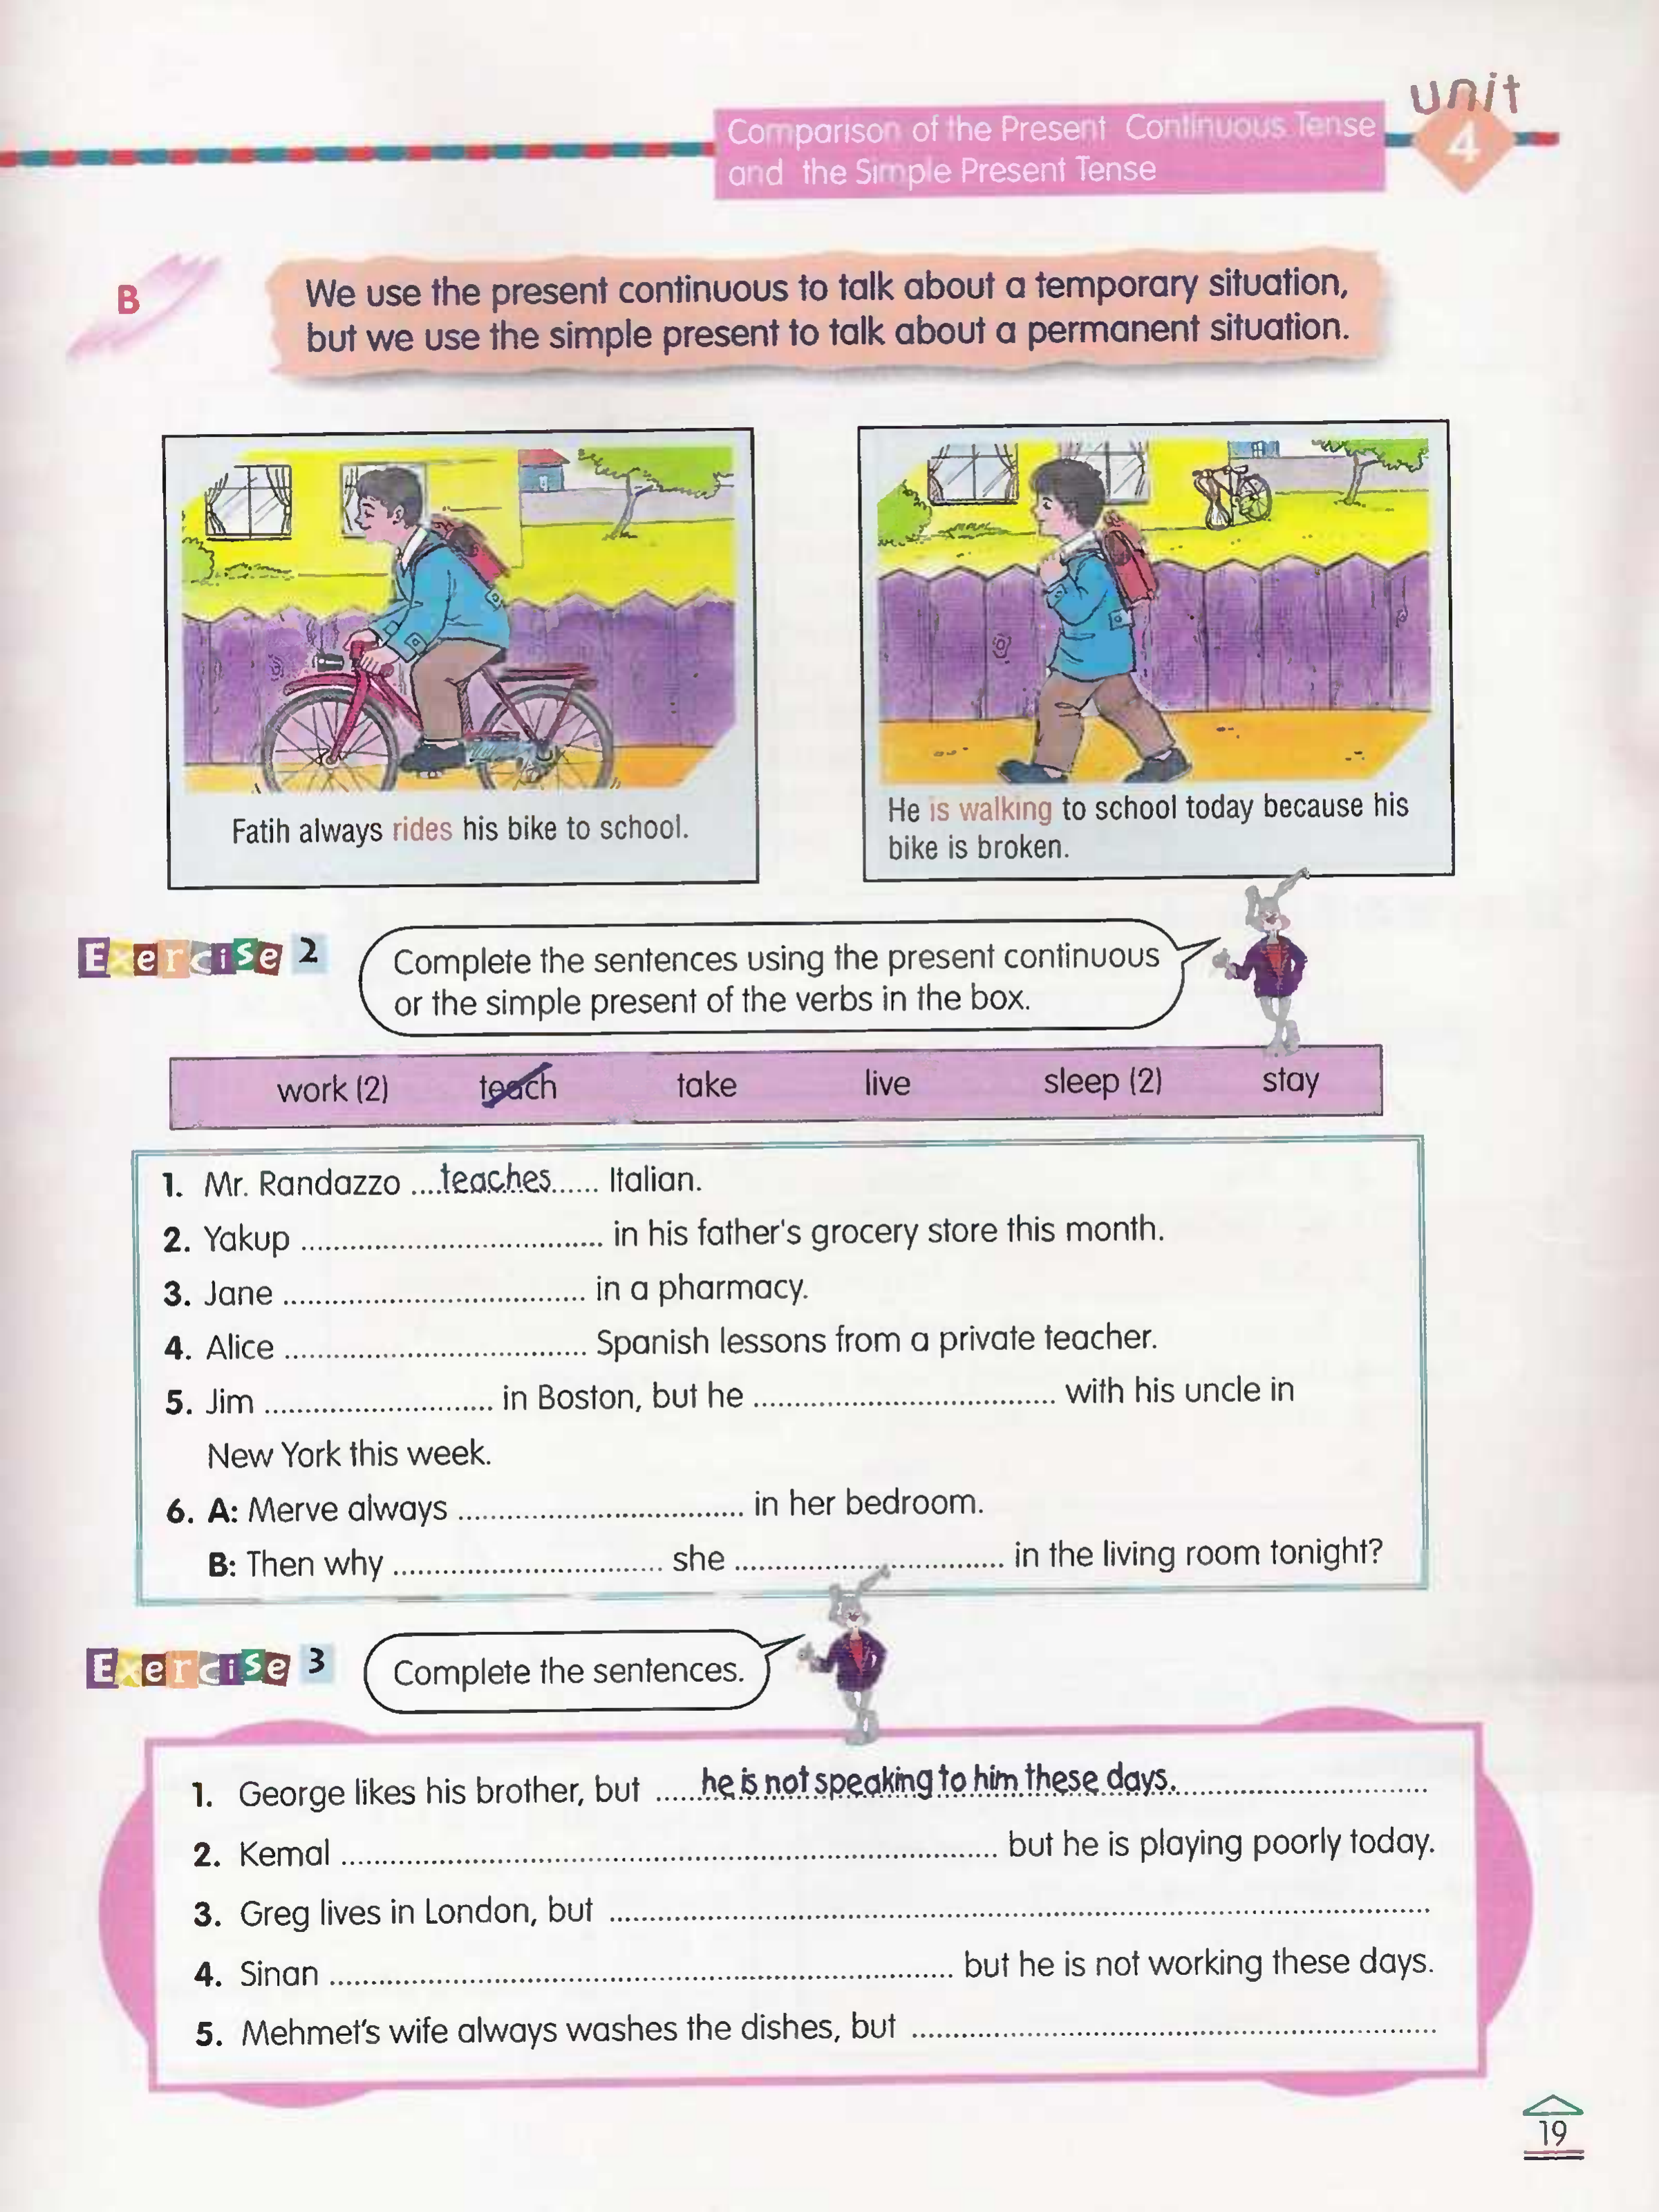 unit
Comparison of the Present Continuous Tense
and the Simple Present Tense
4
B
We use the present continuous to talk about a temporary situation,
but we use the simple present to talk about a permanent situation.
Fatih always rides his bike to school.
He is walking to school today because his
bike is broken.
Exercise 2
Complete the sentences using the present continuous
or the simple present of the verbs in the box.
work (2) teach take live sleep (2) stay
1. Mr. Randazzo ....teaches...... Italian.
2. Yakup .................................... in his father's grocery store this month.
3. Jane .................................... in a pharmacy.
4. Alice .................................... Spanish lessons from a private teacher.
5. Jim ............................ in Boston, but he .................................... with his uncle in
New York this week.
6. A: Merve always .................................. in her bedroom.
B: Then why ................................ she ................................ in the living room tonight?
Exercise 3
Complete the sentences.
1. George likes his brother, but ......he is not speaking to him these days...............................
2. Kemal .............................................................................. but he is playing poorly today.
3. Greg lives in London, but ..................................................................................................
4. Sinan .......................................................................... but he is not working these days.
5. Mehmet's wife always washes the dishes, but ...............................................................
19